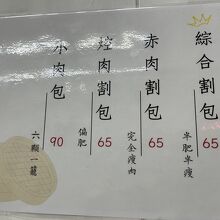 綜合割包
65
半肥半瘦
赤肉割包
65
完全瘦肉
焢肉割包
65
偏肥
小肉包
90
六顆一籠